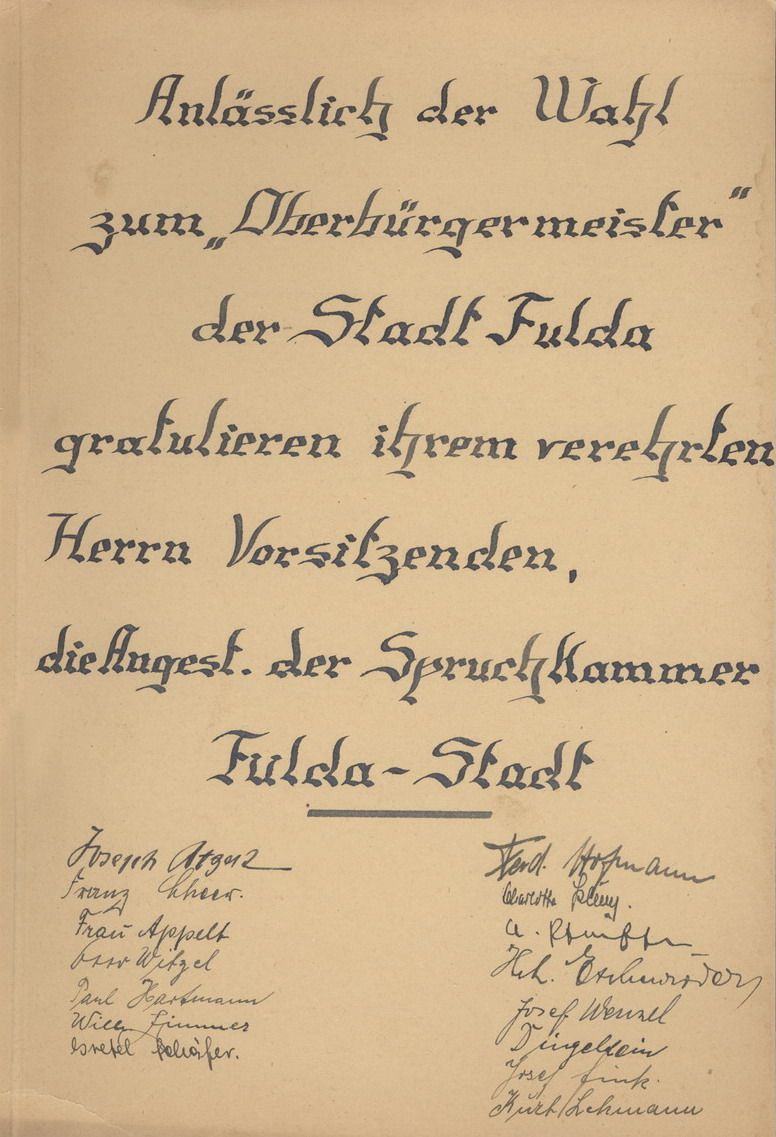 Anlässlich der Wahl
zum „Oberbürgermeister”
der Stadt Fulda
gratulieren ihrem verehrten
Herrn Vorsitzenden,
die Angest. der Spruchkammer
Fulda-Stadt
Joseph
Franz
Frau Appelt
Otto Witzel
Paul Hartmann
Willy Zimmer
Gretel Schäfer.
Ferd. Hofmann
Charlotte
Josef Wenzel
Dingelstein
Josef Fink.
Kurt Lehmann